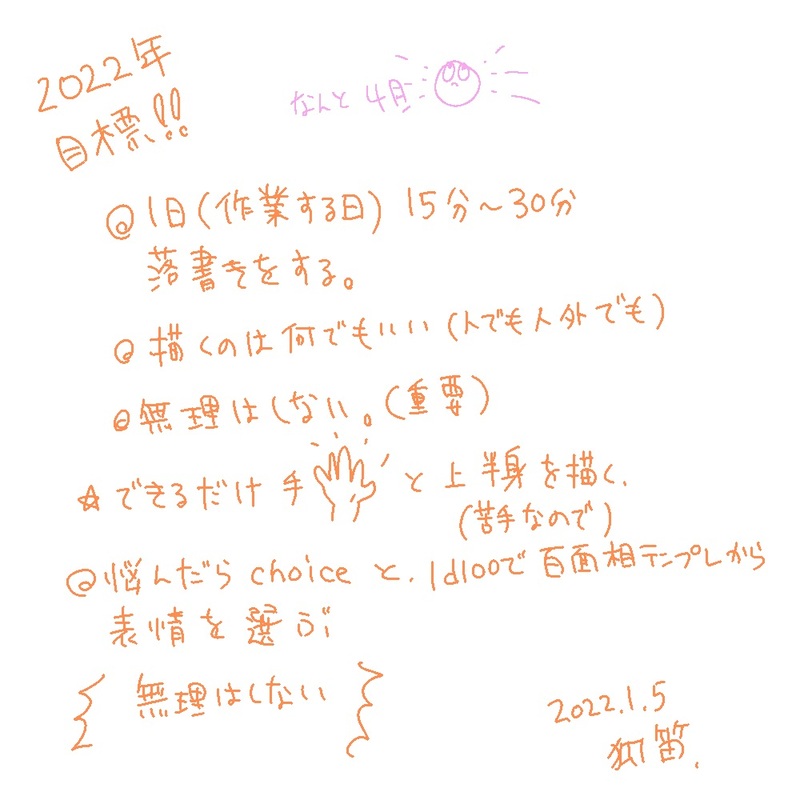 2022年
目標!!
なんと 4月
◎1日(作業する日) 15分〜30分
落書きをする。
◎描くのは何でもいい(人でも人外でも)
◎無理はしない。(重要)
☆できるだけ手 と上半身を描く、
(苦手なので)
◎悩んだら choice と、1d100で百面相テンプレから
表情を選ぶ
無理はしない
2022.1.5
笛.